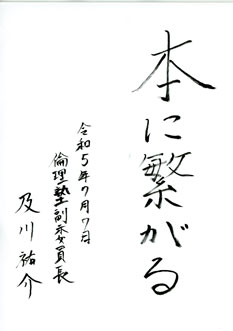 本に繋がる
令和5年7月7日
倫理塾副委員長
及川祐介